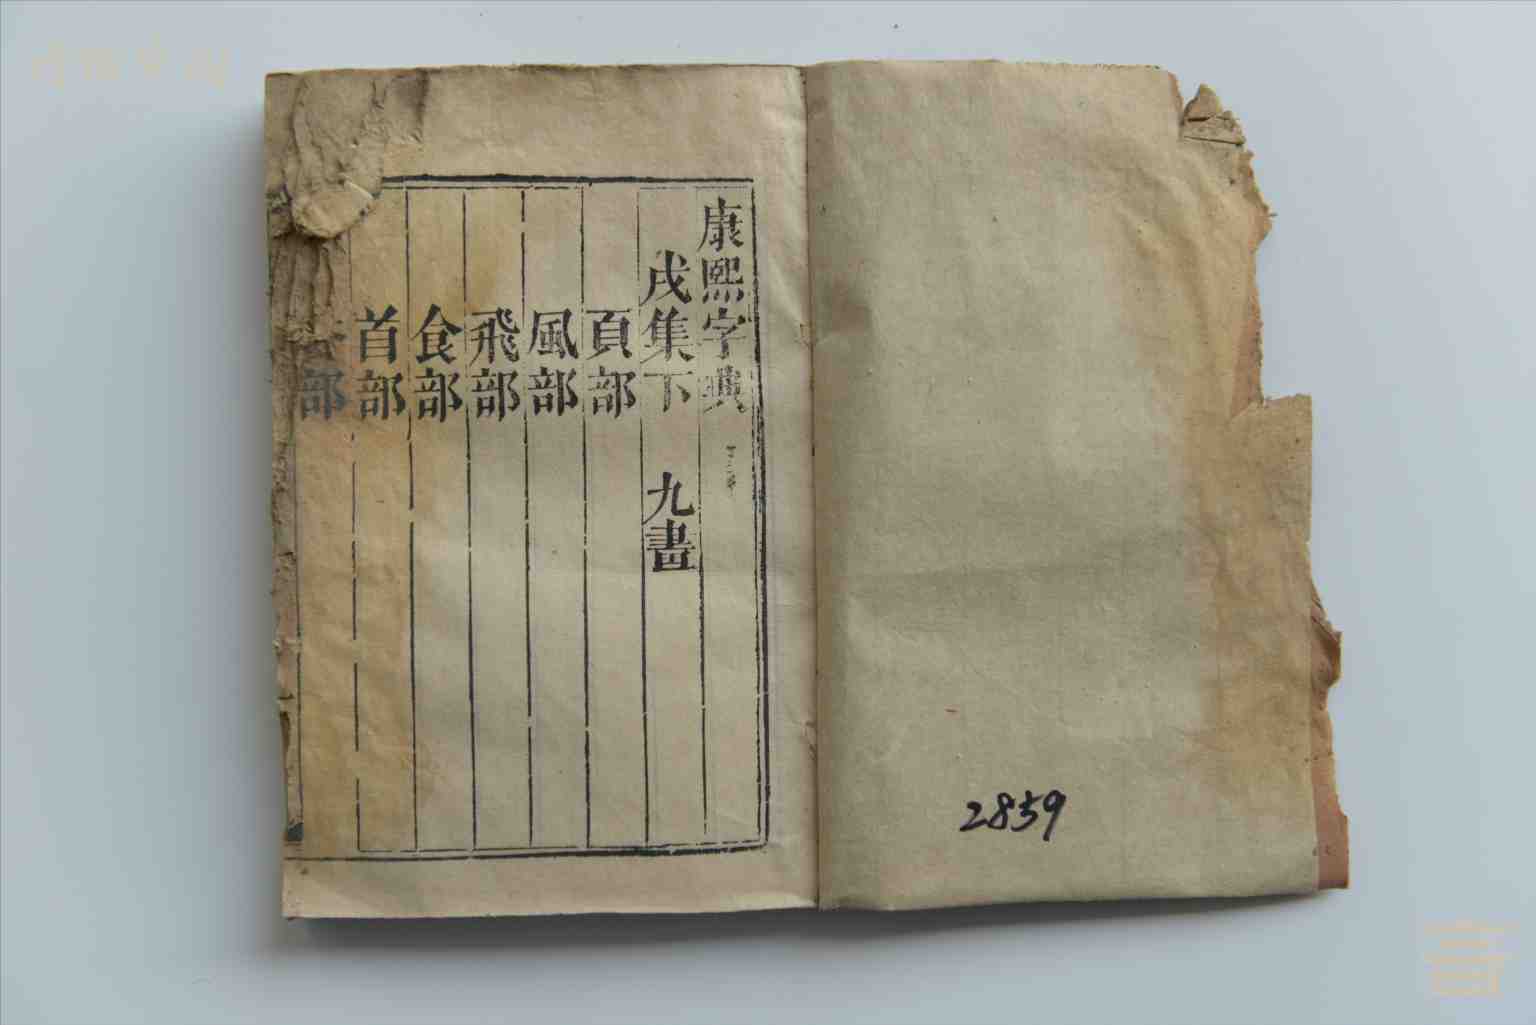 康熙字典
戌集下 九畫
頁部
風部
飛部
食部
首部
部
2859